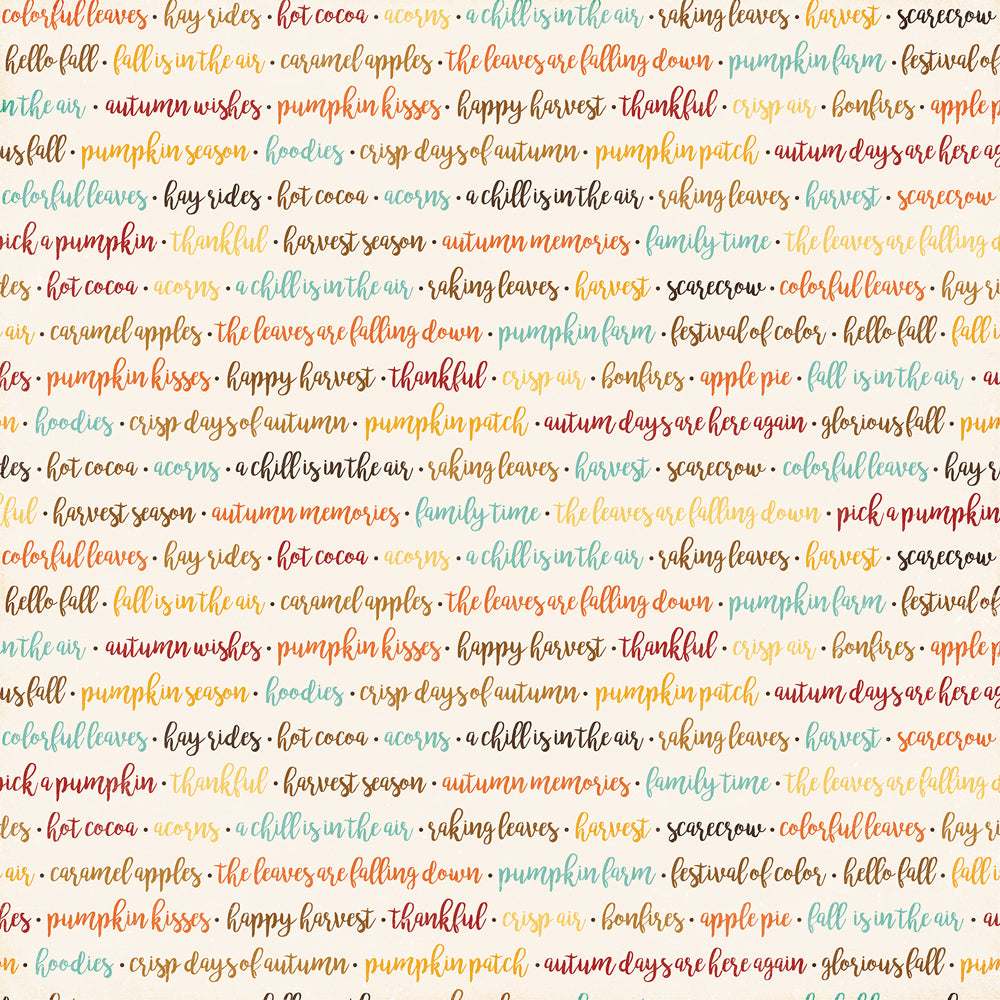 colorful leaves · hay rides · hot cocoa · acorns · a chill is in the air · raking leaves · harvest · scarecrow
hello fall · fall is in the air · caramel apples · the leaves are falling down · pumpkin farm · festival of
in the air · autumn wishes · pumpkin kisses · happy harvest · thankful · crisp air · bonfires · apple p
us fall · pumpkin season · hoodies · crisp days of autumn · pumpkin patch · autum days are here ag
colorful leaves · hay rides · hot cocoa · acorns · a chill is in the air · raking leaves · harvest · scarecrow
pick a pumpkin · thankful · harvest season · autumn memories · family time · the leaves are falling d
des · hot cocoa · acorns · a chill is in the air · raking leaves · harvest · scarecrow · colorful leaves · hay ri
air · caramel apples · the leaves are falling down · pumpkin farm · festival of color · hello fall · fall i
hes · pumpkin kisses · happy harvest · thankful · crisp air · bonfires · apple pie · fall is in the air · au
on · hoodies · crisp days of autumn · pumpkin patch · autum days are here again · glorious fall · pum
des · hot cocoa · acorns · a chill is in the air · raking leaves · harvest · scarecrow · colorful leaves · hay r
kful · harvest season · autumn memories · family time · the leaves are falling down · pick a pumpkin
colorful leaves · hay rides · hot cocoa · acorns · a chill is in the air · raking leaves · harvest · scarecrow
hello fall · fall is in the air · caramel apples · the leaves are falling down · pumpkin farm · festival of
in the air · autumn wishes · pumpkin kisses · happy harvest · thankful · crisp air · bonfires · apple p
us fall · pumpkin season · hoodies · crisp days of autumn · pumpkin patch · autum days are here ag
colorful leaves · hay rides · hot cocoa · acorns · a chill is in the air · raking leaves · harvest · scarecrow
pick a pumpkin · thankful · harvest season · autumn memories · family time · the leaves are falling d
des · hot cocoa · acorns · a chill is in the air · raking leaves · harvest · scarecrow · colorful leaves · hay ri
air · caramel apples · the leaves are falling down · pumpkin farm · festival of color · hello fall · fall i
hes · pumpkin kisses · happy harvest · thankful · crisp air · bonfires · apple pie · fall is in the air · au
on · hoodies · crisp days of autumn · pumpkin patch · autum days are here again · glorious fall · pum